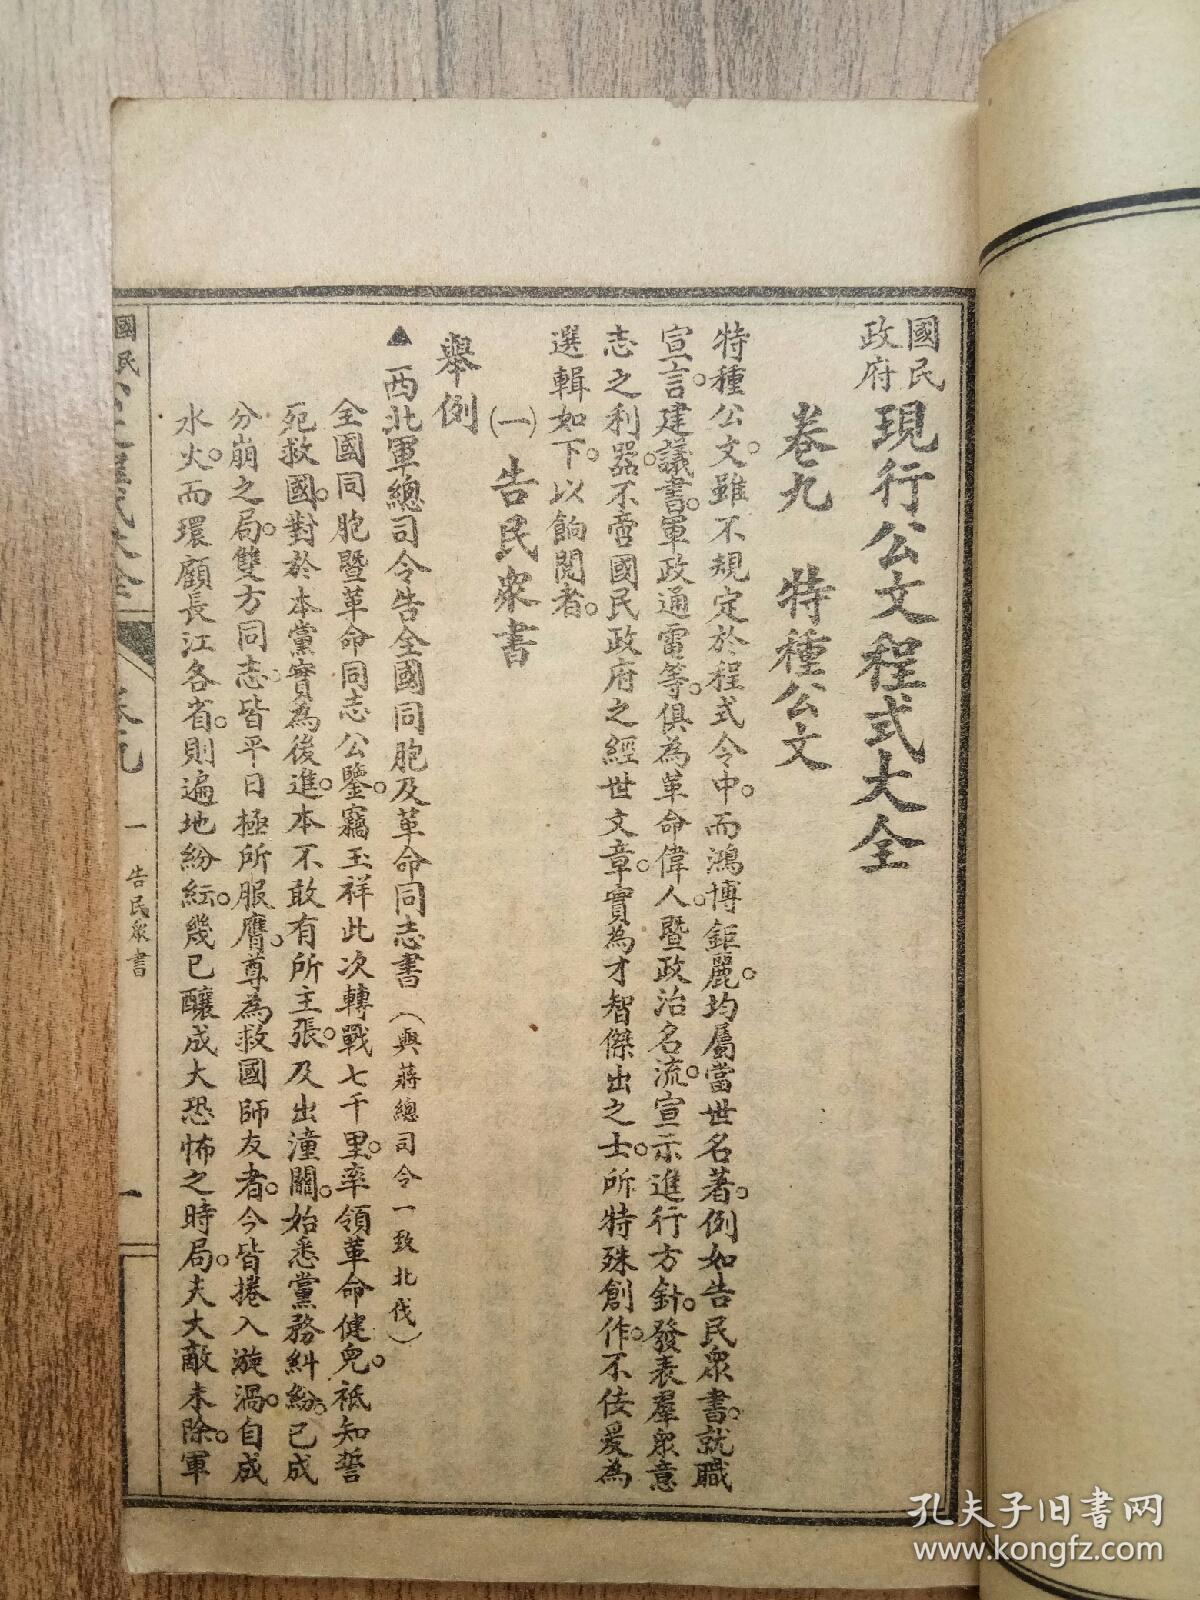 國民政府現行公文程式大全
卷九　特種公文
特種公文。雖不規定於程式令中。而鴻博鉅麗。均屬當世名著。例如告民眾書。就職
宣言。建議書。軍政通電等。俱為革命偉人。暨政治名流。宣示進行方針。發表羣眾意
志之利器。不啻國民政府之經世文章。實為才智傑出之士。所特殊創作。不佞爰為
選輯如下。以餉閱者。
(一)　告民眾書
舉例
▲西北軍總司令告全國同胞及革命同志書（與蔣總司令一致北伐）
全國同胞暨革命同志公鑒。竊玉祥此次轉戰七千里。率領革命健兒。祇知誓
死救國。對於本黨實為後進。本不敢有所主張。及出潼關。始悉黨務糾紛。已成
分崩之局。雙方同志。皆平日極所服膺。尊為救國師友者。今皆捲入漩渦。自成
水火。而環顧長江各省。則遍地紛紜。幾已釀成大恐怖之時局。夫大敵未除。軍
國民
卷九
一　告民眾書
一
孔夫子旧书网
www.kongfz.com